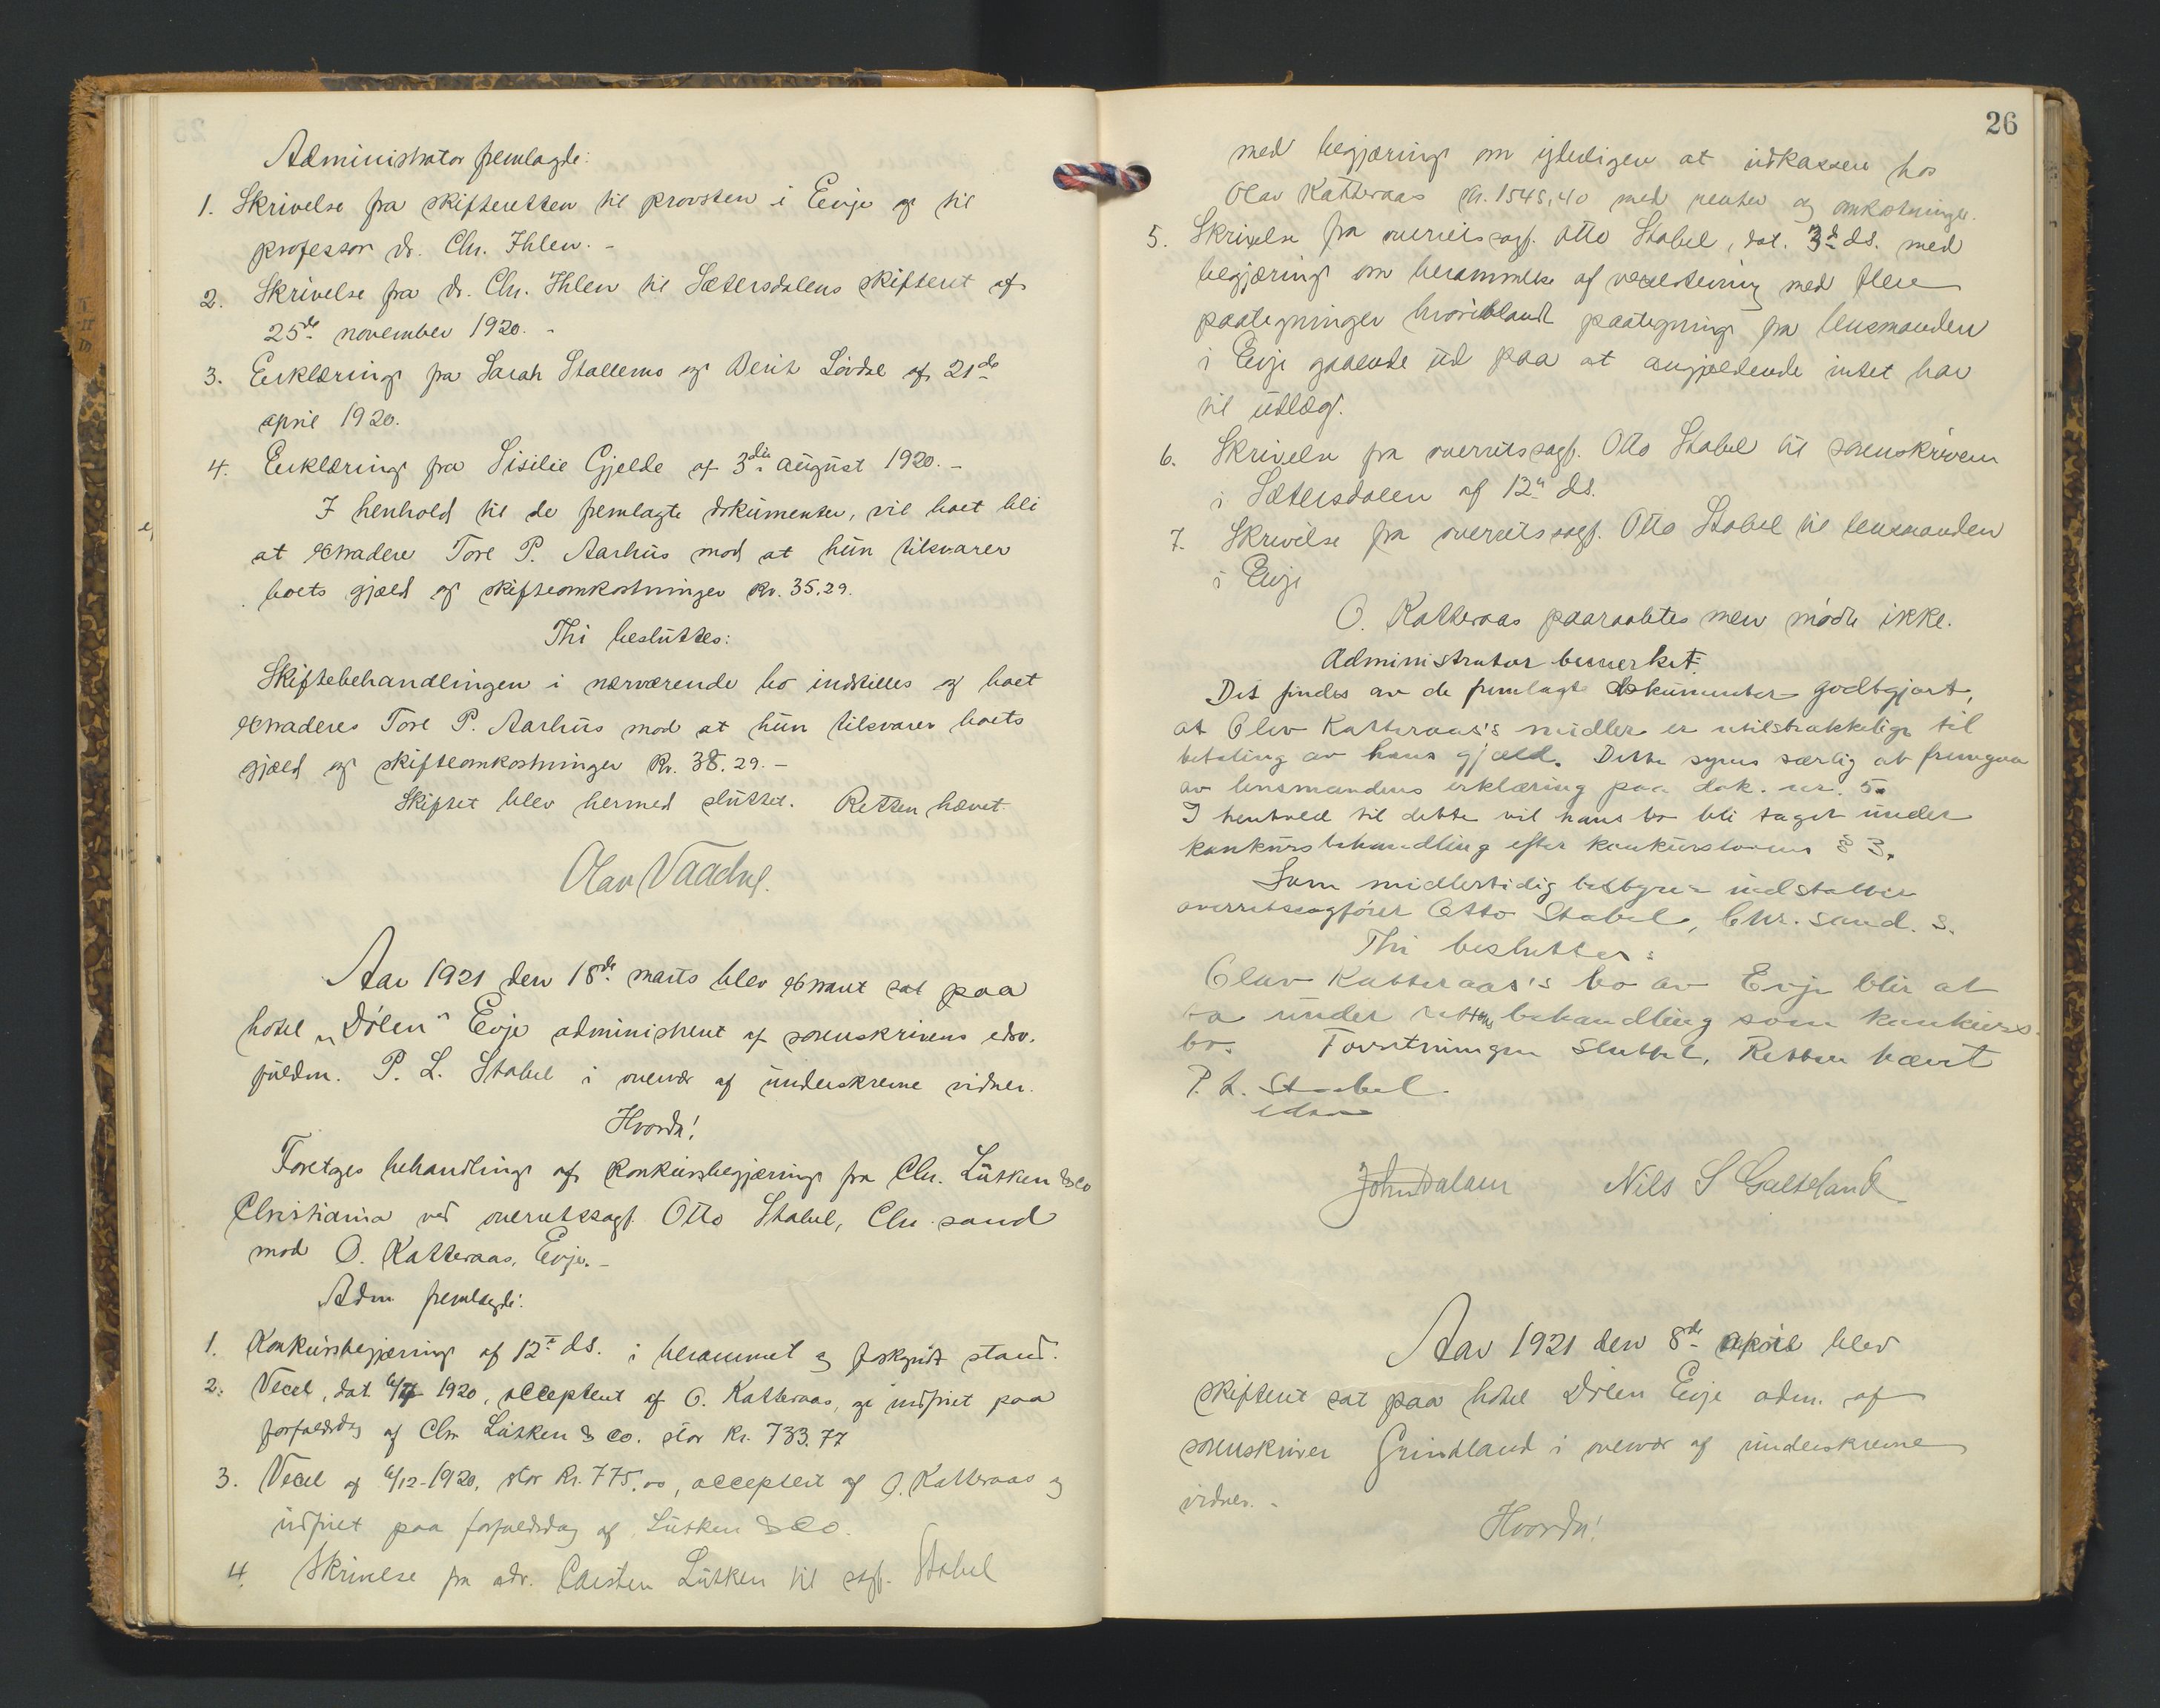 Administrator fremlagde:
1. Skrivelse fra skifteretten til provsten i Evje og til
professor dr. Chr. Ihlen. -
2. Skrivelse fra dr. Chr. Ihlen til Sætersdalens skifteret af
25de november 1920. -
3. Erklæring fra Sarah Stallemo og Berit Løvdal af 21de
april 1920.
4. Erklæring fra Sisilie Gjelde af 3die august 1920. -
I henhold til de fremlagte dokumenter, vil boet bli
at extradere Tore P. Aarhus mod at hun tilsvarer
boets gjæld og skifteomkostninger kr. 35.29.
Thi besluttes:
Skiftebehandlingen i nærværende bo indstilles og boet
extraderes Tore P. Aarhus mod at hun tilsvarer boets
gjæld og skifteomkostninger kr. 38.29. -
Skiftet blev hermed sluttet. Retten hævet.
Olav
Aar 1921 den 18de marts blev extraret sat paa
hotel „Dølen“ Evje administrert af sorenskriverens edsv.
fuldm. P. L. Stabel i overvær af underskrevne vidner.
Hvorda!
Foretges behandling af konkursbegjæring fra Chr. Lütken & Co
Christiania ved overretssagf. Otto Stabel, Chr.sand
mod O. Katteraas, Evje. -
Adm fremlagde:
1. Konkursbegjæring af 12te ds. i berammet og forkyndt stand.
2. Vecel, dat. 1920, acceptert af O. Katteraas, og indfriet paa
forfaldsdag af Chr Lütken & Co. stor kr. 733.77
3. Vecel af 6/12-1920, stor kr. 775.00, acceptert af O. Katteraas og
indfriet paa forfaldsdag af Lütken & Co.
4. Skrivelse fra adv. Carsten Lütken til sagf. Stabel
26
med begjæring om yderligere at indkassere hos
Olav Katteraas kr. 1548,40 med renter og omkostninger.
5. Skrivelse fra overretssagf. Otto Stabel, dat. 3d ds. med
begjæring om berammelse af med flere
paategninger hvoriblandt paategning fra lensmanden
i Evje gaaende ud paa at angjældende intet har
til udlæg.
6. Skrivelse fra overretssagf. Otto Stabel til sorenskriveren
i Sætersdalen af 12te ds.
7. Skrivelse fra overretssagf. Otto Stabel til lensmanden
i Evje
O. Katteraas paaraabtes men mødte ikke.
Administrator bemerket:
Det findes av de fremlagte dokumenter godtgjort,
at Olav Katteraas's midler er utilstrækkelige til
betaling av hans gjæld. Dette synes særlig at fremgaa
av lensmandens erklæring paa dok. nr. 5.
I henhold til dette vil hans bo bli taget under
konkursbehandling efter konkurslovens § 3.
Som midlertidig bestyrer indsættes
overretssagfører Otto Stabel, Chr.sand. S.
Thi besluttes:
Olav Katteraas's bo av Evje blir at
ta under rettens behandling som konkurs-
bo. Forretningen sluttet, Retten hævet
P. L. Stabel
edsv
John Dalen Nils S Galteland
Aar 1921 den 8de april blev
skifteret sat paa hotel Dølen Evje adm. af
sorenskriver Grindland i overvær af underskrevne
vidner. -
Hvorda!